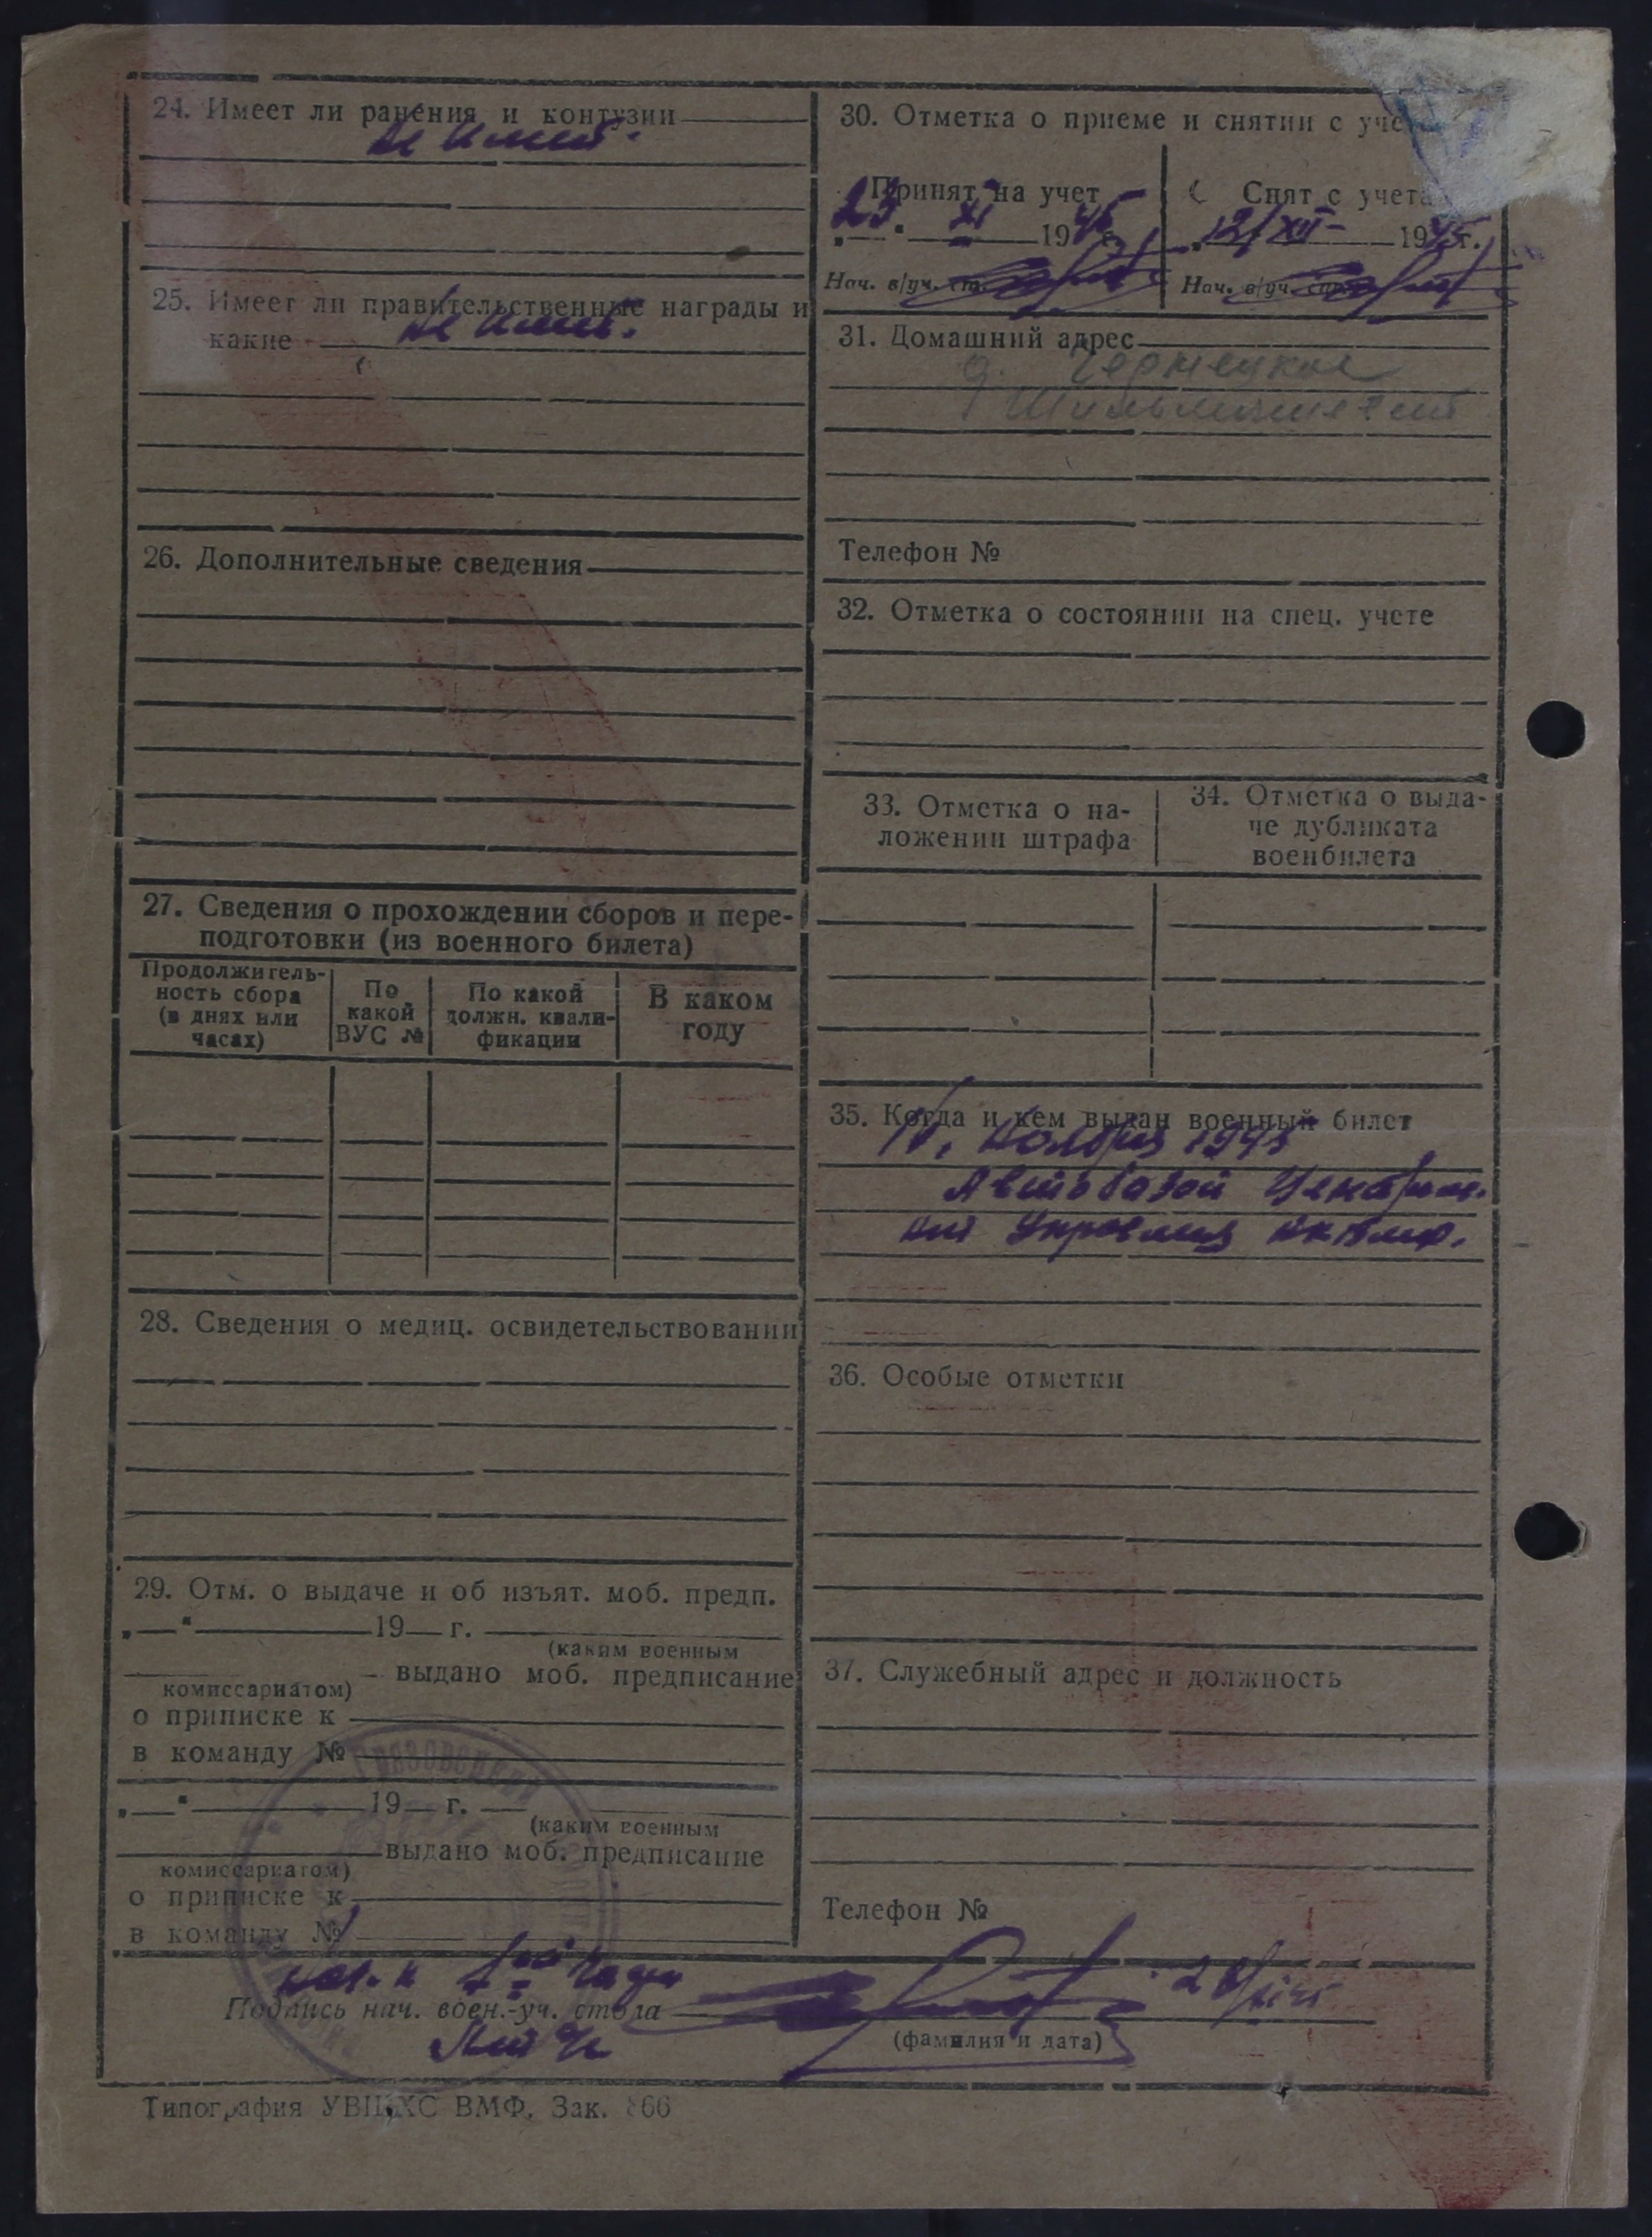 24. Имеет ли ранения и контузии
не имеет.
25. Имеет ли правительственные награды и
какие
не имеет.
26. Дополнительные сведения
27. Сведения о прохождении сборов и пере-
подготовки (из военного билета)
Продолжитель-
ность сбора
(в днях или
часах)
По
какой
ВУС №
По какой
должн. квали-
фикации
В каком
году
28. Сведения о медиц. освидетельствовании
29. Отм. о выдаче и об изъят. моб. предп.
„—“ 19— г.
(каким военным
комиссариатом)
выдано моб. предписание
о приписке к
в команду №
„—“ 19— г.
(каким военным
комиссариатом)
выдано моб. предписание
о приписке к
в команду №
30. Отметка о приеме и снятии с
Принят на учет
23 XI 1945
Нач. в/уч.
Снят с учета
12/XII 1945 г.
Нач. в/уч.
31. Домашний адрес
д.
Телефон №
32. Отметка о состоянии на спец. учете
33. Отметка о на-
ложении штрафа
34. Отметка о выда-
че дубликата
военбилета
35. Когда и кем выдан военный билет
ноября 1945
Автобазой
36. Особые отметки
37. Служебный адрес и должность
Телефон №
Грязовецкий
Подпись нач. воен.-уч. стола
(фамилия и дата)
Типография ВМФ. Зак.